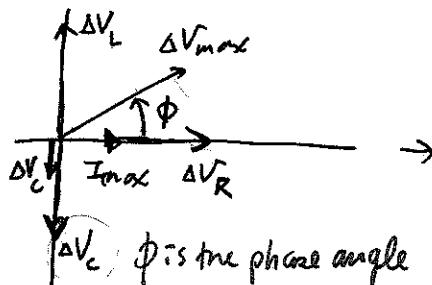 ΔV_L
ΔV_max
ϕ
ΔV_C
I_max
ΔV_R
ΔV_C
ϕ is the phase angle